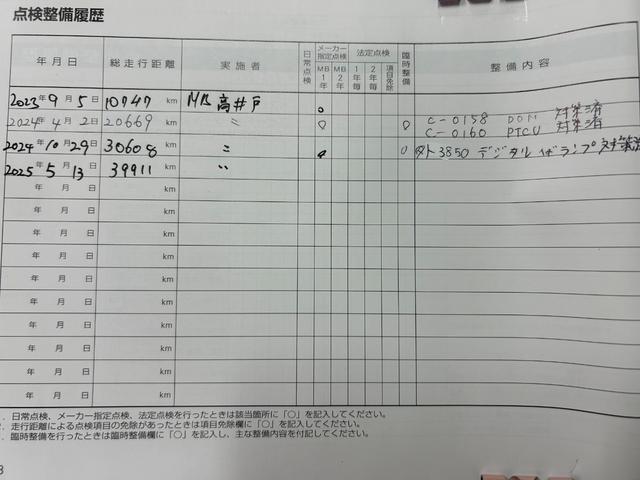 点検整備履歴
年月日 総走行距離 実施者 日常点検 メーカー指定点検 MB1年 MB2年 法定点検 1年毎 2年毎 項目免除 臨時整備 整備内容
2023年9月5日 10747 km MB高井戸 ○
2024年4月2日 20669 km 〃 ○ ○ C-0158 DOM 対策済
C-0160 PTCU 対策済
2024年10月29日 30608 km 〃 ○ ○ 外3850 デジタル ランプ対策済
2025年5月13日 39911 km 〃
年 月 日 km
年 月 日 km
年 月 日 km
年 月 日 km
年 月 日 km
年 月 日 km
年 月 日 km
年 月 日 km
年 月 日 km
年 月 日 km
1. 日常点検、メーカー指定点検、法定点検を行ったときは該当箇所に「○」を記入してください。
2. 走行距離による点検項目の免除があったときは項目免除欄に「○」を記入してください。
. 臨時整備を行ったときは臨時整備欄に「○」を記入し、主な整備内容を付記してください。